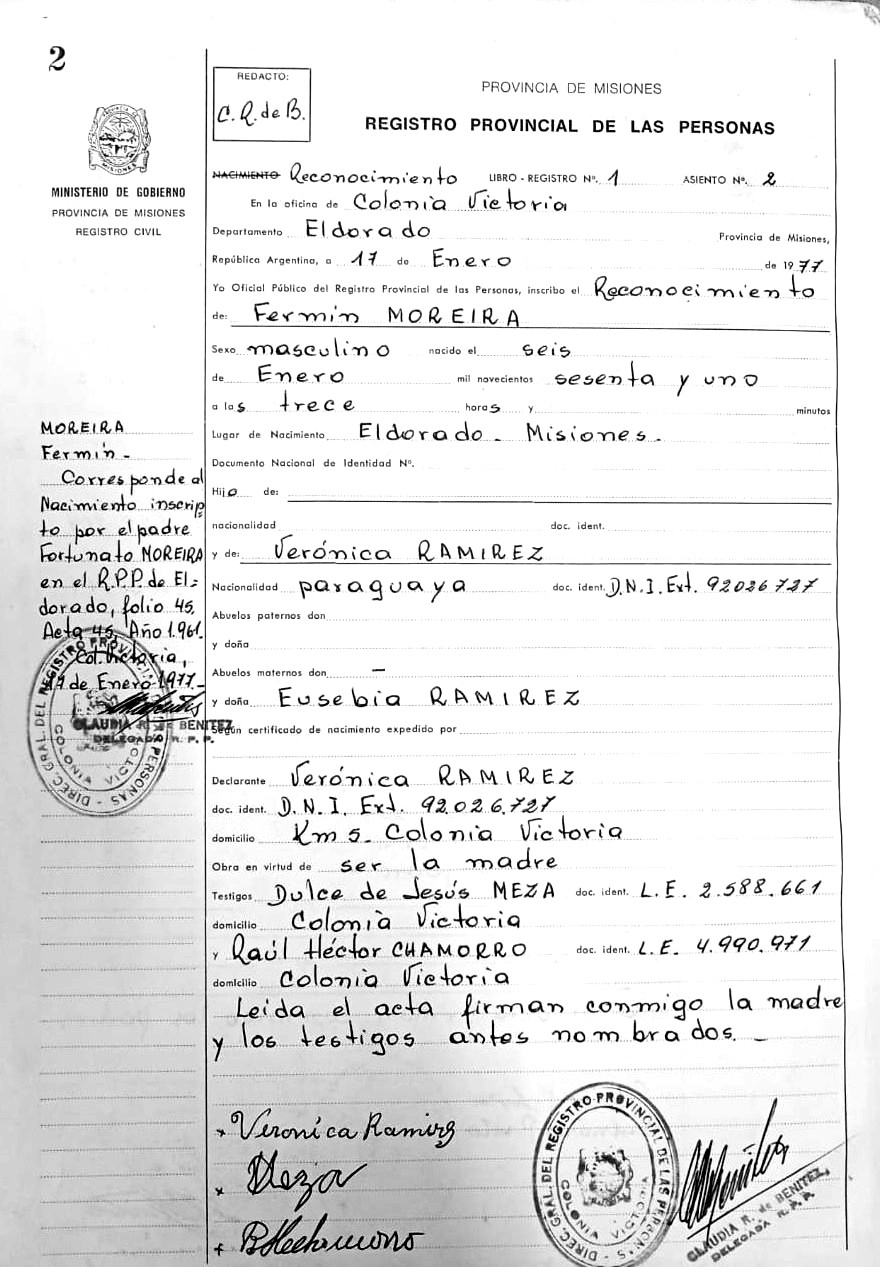 2
REDACTO:
C. R. de B.
PROVINCIA DE MISIONES
REGISTRO PROVINCIAL DE LAS PERSONAS
MINISTERIO DE GOBIERNO
PROVINCIA DE MISIONES
REGISTRO CIVIL
NACIMIENTO Reconocimiento LIBRO - REGISTRO Nº. 1 ASIENTO Nº. 2
En la oficina de Colonia Victoria
Departamento Eldorado Provincia de Misiones,
República Argentina, a 17 de Enero de 1977
Yo Oficial Público del Registro Provincial de las Personas, inscribo el Reconocimiento
de: Fermín MOREIRA
Sexo masculino nacido el seis
de Enero mil novecientos sesenta y uno
a las trece horas y minutos
Lugar de Nacimiento Eldorado - Misiones -
Documento Nacional de Identidad Nº.
Hijo de:
nacionalidad doc. ident.
y de: Verónica RAMIREZ
Nacionalidad paraguaya doc. ident. D.N.I. Ext. 92026727
Abuelos paternos don
y doña
Abuelos maternos don —
y doña Eusebia RAMIREZ
Según certificado de nacimiento expedido por
Declarante Verónica RAMIREZ
doc. ident. D.N.I. Ext. 92.026.727
domicilio Km 5 - Colonia Victoria
Obra en virtud de ser la madre
Testigos Dulce de Jesús MEZA doc. ident. L.E. 2.588.661
domicilio Colonia Victoria
y Raúl Héctor CHAMORRO doc. ident. L.E. 4.990.971
domicilio Colonia Victoria
Leída el acta firman conmigo la madre
y los testigos antes nombrados. -
MOREIRA
Fermín -
Corresponde al
Nacimiento inscrip
to por el padre
Fortunato MOREIRA
en el R.P.P. de El-
dorado, folio 45,
Acta 45, Año 1.961.
Col. Victoria,
17 de Enero 1977.-
CLAUDIA R. de BENITEZ
DELEGADA R. P. P.
DIREC. GRAL. DEL REGISTRO PROVINCIAL DE LAS PERSONAS
COLONIA VICTORIA
x Veronica Ramirez
x Meza
x RHchamorro
DIREC. GRAL. DEL REGISTRO PROVINCIAL DE LAS PERSONAS
COLONIA VICTORIA
CLAUDIA R. de BENITEZ,
DELEGADA R. P. P.